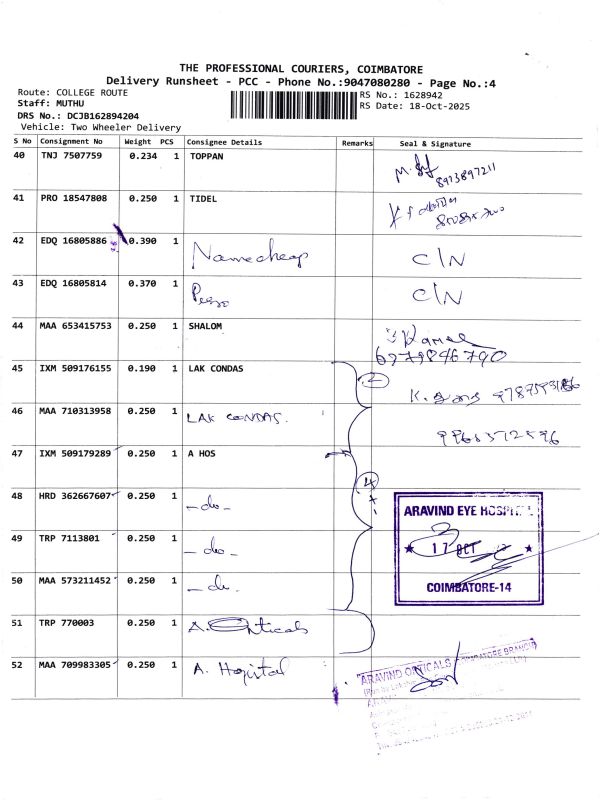 THE PROFESSIONAL COURIERS, COIMBATORE
Delivery Runsheet - PCC - Phone No.:9047080280 - Page No.:4
Route: COLLEGE ROUTE
Staff: MUTHU
DRS No.: DCJB162894204
Vehicle: Two Wheeler Delivery
RS No.: 1628942
RS Date: 18-Oct-2025
S No Consignment No Weight PCS Consignee Details Remarks Seal & Signature
40 TNJ 7507759 0.234 1 TOPPAN
8973897211
41 PRO 18547808 0.250 1 TIDEL
42 EDQ 16805886 0.390 1 Namecheap C/N
43 EDQ 16805814 0.370 1 C/N
44 MAA 653415753 0.250 1 SHALOM
Kamal
6379846790
45 IXM 509176155 0.190 1 LAK CONDAS
2
46 MAA 710313958 0.250 1 LAK CONDAS.
47 IXM 509179289 0.250 1 A HOS
4
48 HRD 362667607 0.250 1 -do-
49 TRP 7113801 0.250 1 -do-
50 MAA 573211452 0.250 1 -do-
ARAVIND EYE HOSPITAL
17 OCT
COIMBATORE-14
51 TRP 770003 0.250 1 A. Opticals
52 MAA 709983305 0.250 1 A. Hospital
ARAVIND OPTICALS